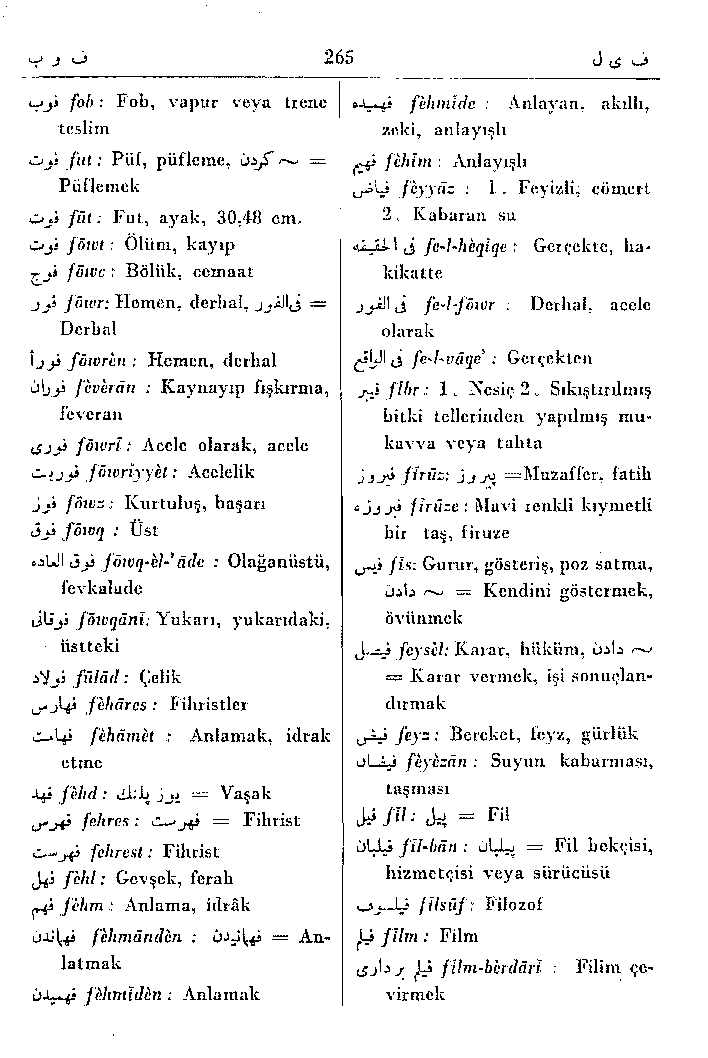 ف و ب 265 ف ی ل
فوب fob : Fob, vapur veya trene
teslim
فوت fut : Püf, püfleme, کردن ~ =
Püflemek
فوت fūt : Fut, ayak, 30,48 cm.
فوت fōwt : Ölüm, kayıp
فوج fōwc : Bölük, cemaat
فور fōwr: Hemen, derhal, فی‌الفور =
Derhal
فوراً fōwrèn : Hemen, derhal
فوران fèvèrān : Kaynayıp fışkırma,
feveran
فوری fōwrī : Acele olarak, acele
فوریت fōwriyyèt : Acelelik
فوز fōwz : Kurtuluş, başarı
فوق fōwq : Üst
فوق العاده fōwq-èl-'āde : Olağanüstü,
fevkalade
فوقانی fōwqānī: Yukarı, yukarıdaki,
üstteki
فولاد fūlād : Çelik
فهارس fèhāres : Fihristler
فهامت fèhāmèt : Anlamak, idrak
etme
فهد fèhd : یوز پلنگ = Vaşak
فهرس fehres : فهرست = Fihrist
فهرست fehrest : Fihrist
فهل fèhl : Gevşek, ferah
فهم fèhm : Anlama, idrâk
فهماندن fèhmāndèn : فهمانیدن = An-
latmak
فهمیدن fèhmīdèn : Anlamak
فهمیده fèhmīde : Anlayan, akıllı,
zeki, anlayışlı
فهیم fèhīm : Anlayışlı
فیاض fèyyāz : 1. Feyizli, cömert
2. Kabaran su
فی الحقیقه fe-l-hèqiqe : Gerçekte, ha-
kikatte
فی الفور fe-l-fōwr : Derhal, acele
olarak
فی الواقع fe-l-vāqe' : Gerçekten
فیبر fîbr : 1. Nesiç 2. Sıkıştırılmış
bitki tellerinden yapılmış mu-
kavva veya tahta
فیروز fīrūz: پیروز =Muzaffer, fatih
فیروزه fīrūze : Mavi renkli kıymetli
bir taş, firuze
فیس fīs: Gurur, gösteriş, poz satma,
دادن ~ = Kendini göstermek,
övünmek
فیصل feysèl: Karar, hüküm, دادن ~
= Karar vermek, işi sonuçlan-
dırmak
فیض feyz : Bereket, feyz, gürlük
فیضان fèyèzān : Suyun kabarması,
taşması
فیل fīl : پیل = Fil
فیلبان fīl-bān : پیلبان = Fil bekçisi,
hizmetçisi veya sürücüsü
فیلسوف fīlsūf : Filozof
فیلم film : Film
فیلم برداری film-bèrdārī : Filim çe-
virmek